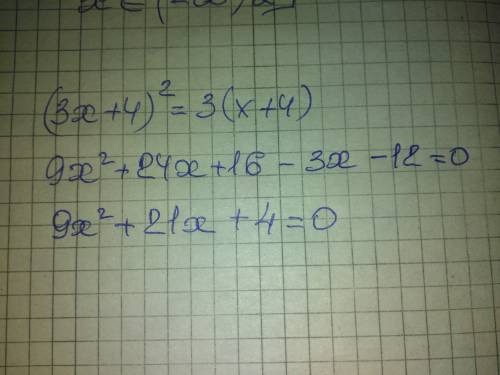 (3x+4)² = 3(x+4)
9x² + 24x + 16 - 3x - 12 = 0
9x² + 21x + 4 = 0